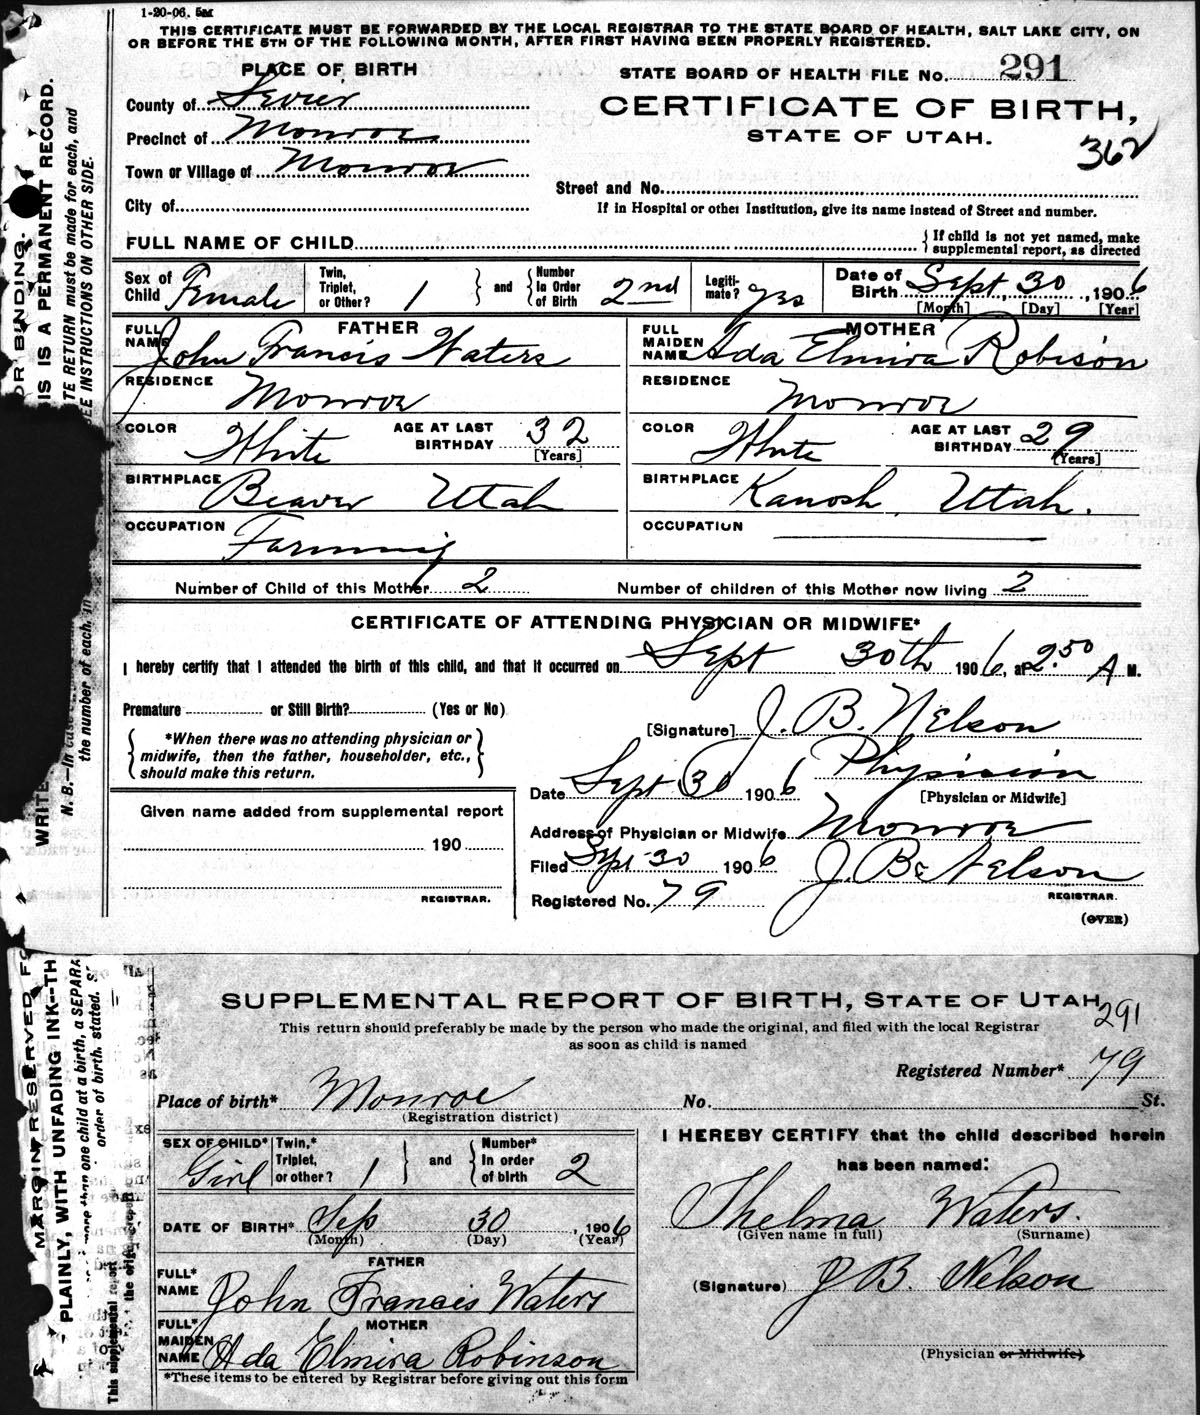 1-20-06. 5M
THIS CERTIFICATE MUST BE FORWARDED BY THE LOCAL REGISTRAR TO THE STATE BOARD OF HEALTH, SALT LAKE CITY, ON
OR BEFORE THE 5TH OF THE FOLLOWING MONTH, AFTER FIRST HAVING BEEN PROPERLY REGISTERED.
PLACE OF BIRTH
STATE BOARD OF HEALTH FILE No. 291
County of Sevier
CERTIFICATE OF BIRTH,
Precinct of Monroe
STATE OF UTAH.
362
Town or Village of Monroe
Street and No.
City of
If in Hospital or other Institution, give its name instead of Street and number.
FULL NAME OF CHILD
If child is not yet named, make
supplemental report, as directed
Sex of Child Female
Twin, Triplet, or Other? 1 and Number In Order of Birth 2nd
Legiti-mate? yes
Date of Birth Sept, 30, 1906
[Month] [Day] [Year]
FATHER
FULL NAME John Francis Waters
MOTHER
FULL MAIDEN NAME Ada Elmira Robison
RESIDENCE Monroe
RESIDENCE Monroe
COLOR White AGE AT LAST BIRTHDAY 32 [Years]
COLOR White AGE AT LAST BIRTHDAY 29 [Years]
BIRTHPLACE Beaver Utah
BIRTHPLACE Kanosh, Utah.
OCCUPATION Farming
OCCUPATION
Number of Child of this Mother 2 Number of children of this Mother now living 2
CERTIFICATE OF ATTENDING PHYSICIAN OR MIDWIFE*
I hereby certify that I attended the birth of this child, and that it occurred on Sept 30th 1906, at 2.50 A M.
Premature or Still Birth? (Yes or No)
[Signature] J. B. Nelson
*When there was no attending physician or
midwife, then the father, householder, etc.,
should make this return.
Date Sept 30 1906 Physician
[Physician or Midwife]
Given name added from supplemental report
190
REGISTRAR.
Address of Physician or Midwife Monroe
Filed Sept 30 1906 J. B. Nelson
REGISTRAR.
Registered No. 79
(OVER)
OR BINDING.
IS IS A PERMANENT RECORD.
TE RETURN must be made for each, and
EE INSTRUCTIONS ON OTHER SIDE.
WRITE
N. B.—In case
the number of each, in
SUPPLEMENTAL REPORT OF BIRTH, STATE OF UTAH
291
This return should preferably be made by the person who made the original, and filed with the local Registrar
as soon as child is named
Registered Number* 79
Place of birth* Monroe No. St.
(Registration district)
SEX OF CHILD* Girl
Twin,* Triplet, or other? 1 and Number* In order of birth 2
DATE OF BIRTH* Sep 30, 1906
(Month) (Day) (Year)
FATHER
FULL* NAME John Francis Waters
MOTHER
FULL* MAIDEN NAME Ada Elmira Robinson
*These items to be entered by Registrar before giving out this form
I HEREBY CERTIFY that the child described herein
has been named:
Thelma Waters.
(Given name in full) (Surname)
(Signature) J B. Nelson
(Physician or Midwife)
MARGIN RESERVED FO
PLAINLY, WITH UNFADING INK--TH
more than one child at a birth, a SEPARA
order of birth, stated. S
This supplemental report